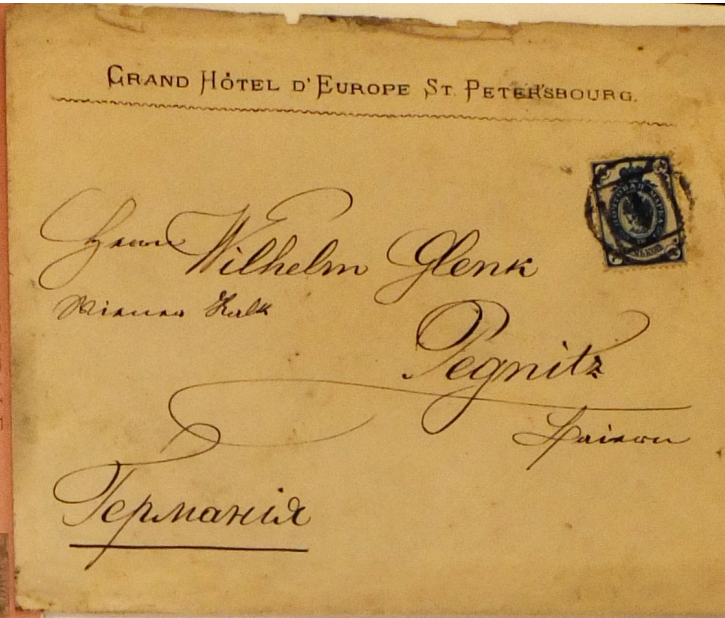 GRAND HÔTEL D'EUROPE ST. PETERSBOURG.
Herrn Wilhelm Glenk
Wiener Kalk
Pegnitz
Baiern
Германія